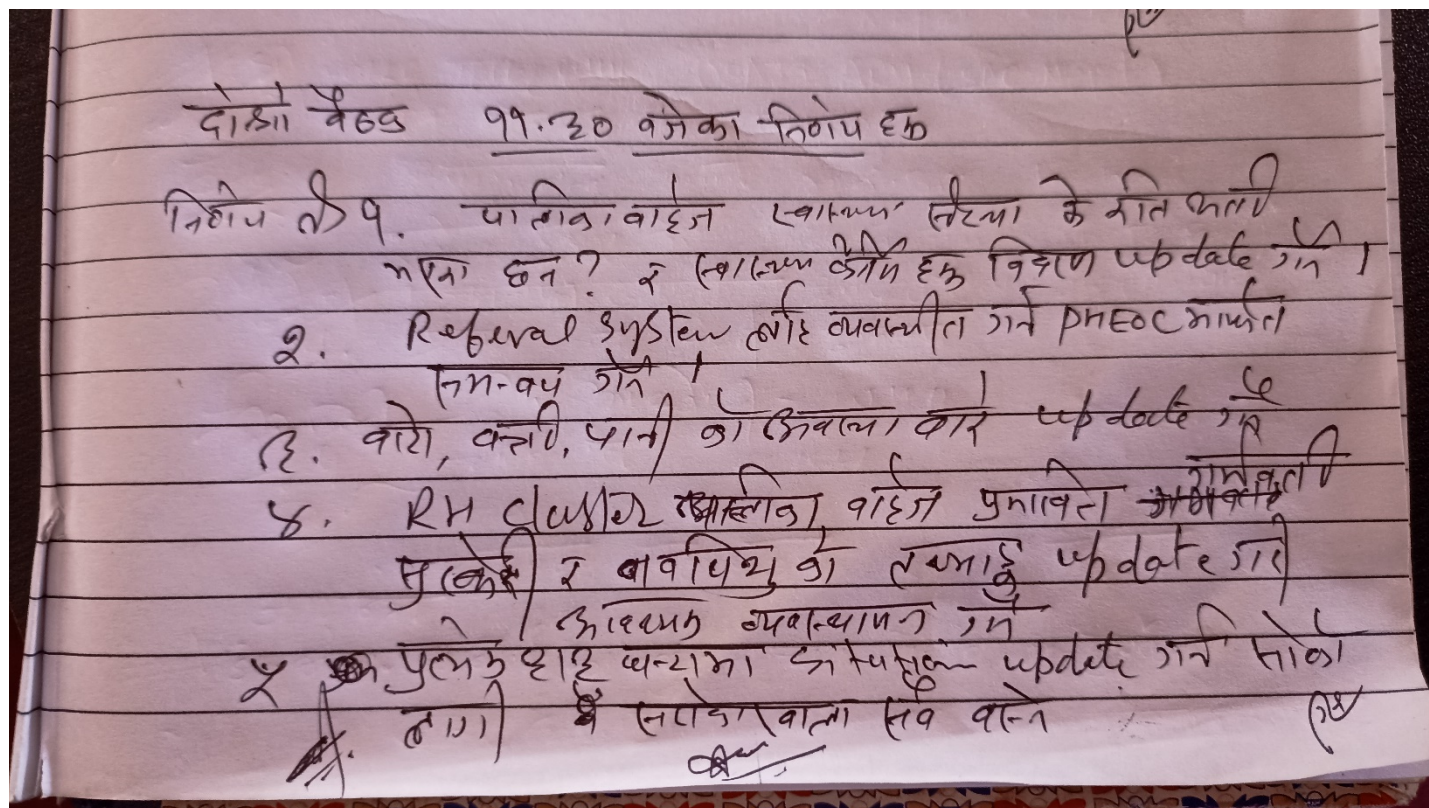 दोश्रो बैठक ११.३० बजेका निर्णय हरु
निर्णय नं १. पालिका वाईज स्वास्थ्य संस्था के कति क्षती
भएका छन? र स्वास्थ्य कर्मि हरु विवरण update गर्ने।
२. Referal System लाई व्यवस्थीत गर्न PHEOC मार्फत
समन्वय गर्ने।
३. बाटो, बत्ती, पानी को अवस्था बारे update गर्ने
४. RH cluster पालिका वाईज प्रभावित गर्भवती
सुत्केरी र नवशिशु को तथ्याङ्क update गरी
आवश्यक व्यवस्थापन गर्ने
५ प्रत्येक घण्टामा update गर्न सोको
लागी सरोकारवाला सबै बस्ने